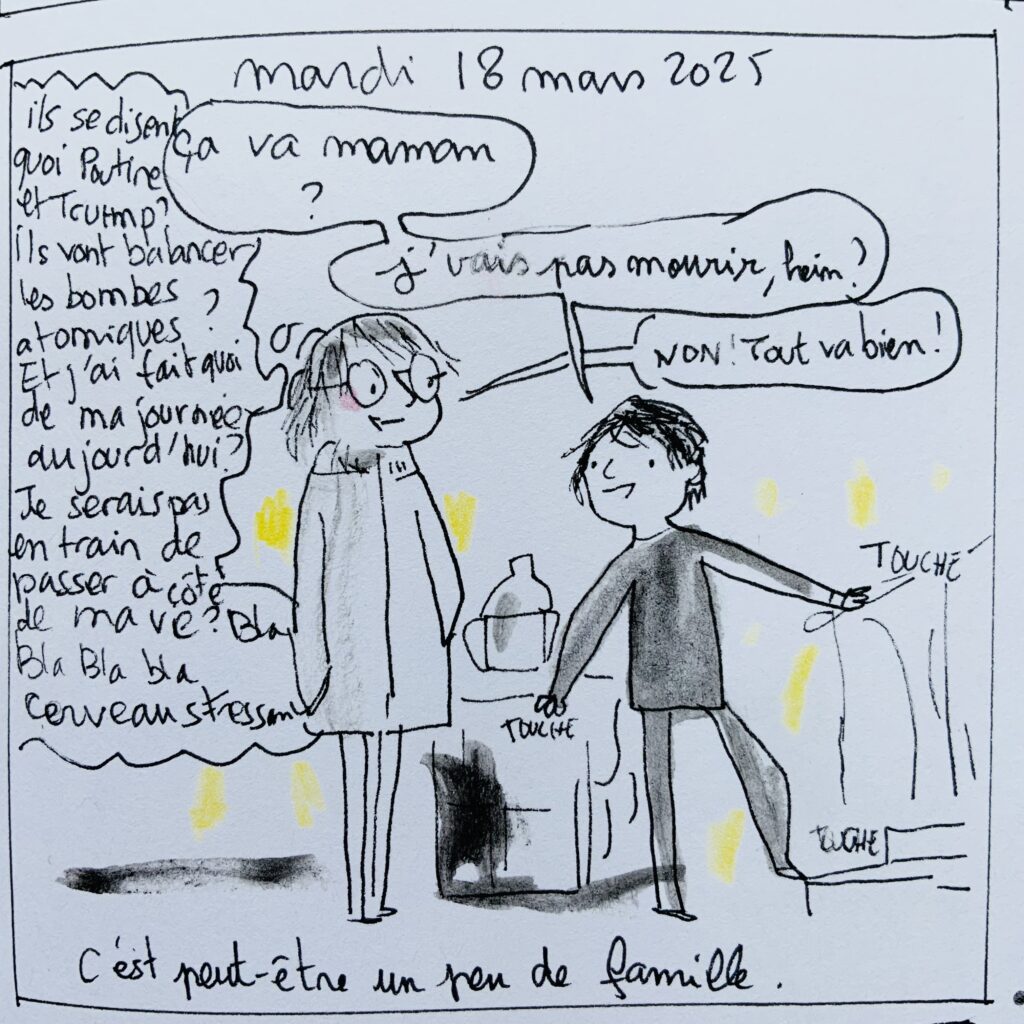 mardi 18 mars 2025
ils se disent
quoi Poutine
et Trump?
ils vont balancer
les bombes
atomiques ?
Et j'ai fait quoi
de ma journée
aujourd'hui?
Je serais pas
en train de
passer à côté
de ma vie? Bla
Bla Bla bla
cerveau stressant
Ça va maman
?
j'vais pas mourir, hein?
NON! Tout va bien!
TOUCHE
TOUCHE
TOUCHE
C'est peut-être un peu de famille.